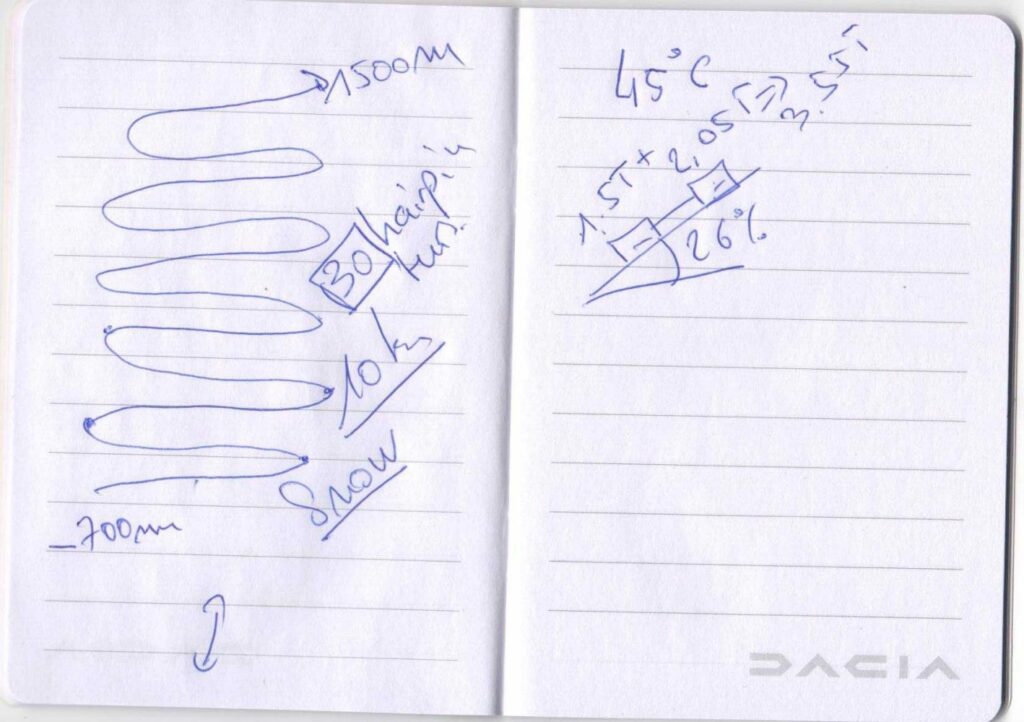 1500m
30 hairpin
turn
10 km
Snow
700m
45°C
1.5T + 2,05T => 3.55T
26%
DACIA